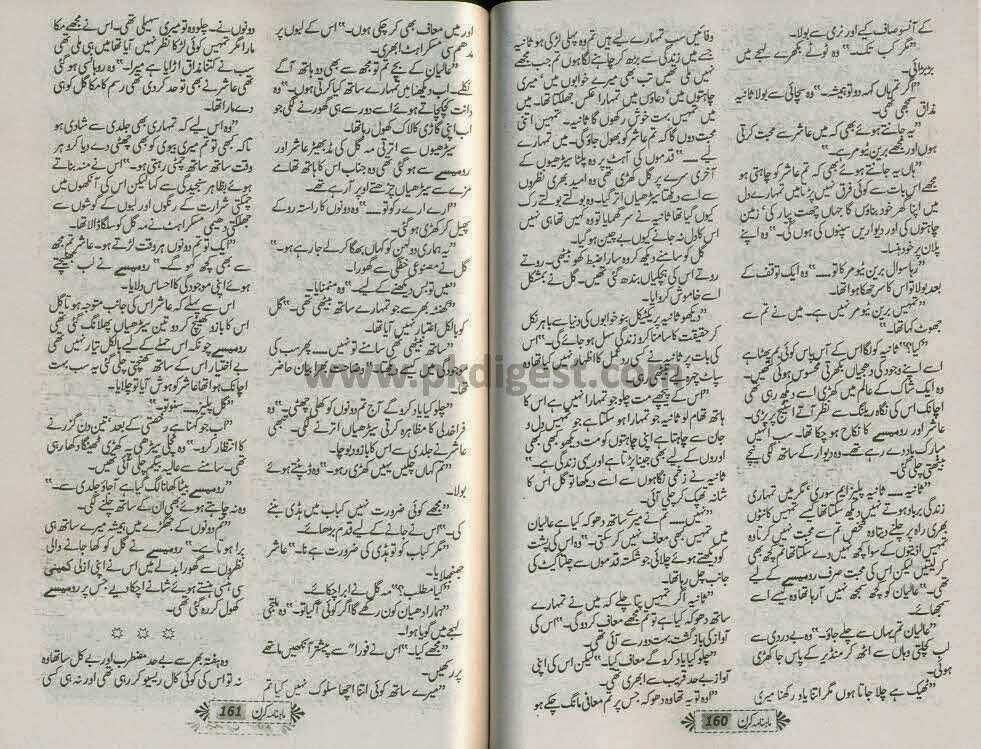 کے آنسو صاف کیے اور نرمی سے بولا۔
"مگر کب تک۔" وہ ٹوٹے بکھرے لہجے میں
بڑبڑائی۔
"اگر تم ہاں کہہ دو تو ہمیشہ۔" وہ سچائی سے بولا ثانیہ
مذاق سمجھی تھی۔
"یہ جانتے ہوئے بھی کہ میں عاشر سے محبت کرتی
ہوں اور مجھے برین ٹیومر ہے۔"
"ہاں یہ جانتے ہوئے بھی کہ تم عاشر کو چاہتی ہو
مجھے اس بات سے کوئی فرق نہیں پڑتا میں تمہارے دل
میں اپنا گھر خود بناؤں گا جہاں چھت پیار کی' زمین
چاہتوں کی اور دیواریں سپنوں کی ہوں گی۔" وہ اپنے
پلان پر خود ہنسا۔
"رہا سوال برین ٹیومر کا تو......" وہ ایک توقف کے
بعد بولا تو اس کا سر جھکا ہوا تھا۔
"تمہیں برین ٹیومر نہیں ہے۔ میں نے تم سے
جھوٹ کہا تھا۔"
"کیا؟" ثانیہ کو لگا اس کے آس پاس کوئی بم پھٹا ہے
اسے اپنے وجود کی دھجیاں بکھرتی محسوس ہوئی تھیں۔
وہ ایک شاک کے عالم میں کھڑی اسے دیکھ رہی تھی
اچانک اس کی نگاہ ریلنگ سے نظر آتے اسٹیج پر پڑی۔
عاشر اور رومیسے کا نکاح ہو چکا تھا۔ سب انہیں
مبارک باد دے رہے تھے۔ وہ دیوار کے ساتھ لگی نیچے
بیٹھتی چلی گئی۔
"ثانیہ..... ثانیہ پلیز ایم سوری' مگر میں تمہاری
زندگی برباد ہوتے نہیں دیکھ سکتا تھا کیسے تمہیں کانٹوں
بھری راہ پر چلنے دیتا وہ شخص تم سے محبت نہیں کرتا وہ
تمہیں اذیتوں کے سوا کچھ نہیں دے سکتا تھا تم کچھ بھی
کر لیتیں لیکن اس کی محبت صرف رومیسے کے لیے
تھی۔" عالیان کو کچھ سمجھ نہیں آ رہا تھا وہ کیسے اسے
سمجھائے۔
"عالیان تم یہاں سے چلے جاؤ۔" وہ بے دردی سے
لب کچلتی وہاں سے اٹھ کر منڈیر کے پاس جا کھڑی
ہوئی۔
"ٹھیک ہے چلا جاتا ہوں مگر اتنا یاد رکھنا میری
وفائیں سب تمہارے لیے ہیں تم وہ پہلی لڑکی ہو ثانیہ
جسے میں زندگی سے بڑھ کر چاہنے لگا ہوں تم جب مجھے
نہیں ملی تھیں تب بھی میرے خوابوں میں' میری
چاہتوں میں' دعاؤں میں تمہارا عکس جھلکتا تھا۔ میں
تمہیں بہت خوش رکھوں گا ثانیہ۔ تمہیں اتنی
محبت دوں گا کہ تم عاشر کو بھول جاؤ گی۔ میں تمہارے
لیے......" قدموں کی آہٹ پر وہ پلٹا سیڑھیوں کے
آخری سرے پر گل کھڑی تھی وہ امید بھری نظروں
سے اسے دیکھتا سیڑھیاں اتر گیا۔ وہ بولتے بولتے رک
کیوں گیا تھا ثانیہ نے سر گھمایا تو وہ کہیں تھا ہی نہیں
اس کا دل نہ جانے کیوں بے چین ہو گیا۔
گل کو سامنے دیکھ کر وہ سارا ضبط کھو بیٹھی۔ روتے
روتے اس کی ہچکیاں بندھ گئی تھیں۔ گل نے بمشکل
اسے خاموش کروایا۔
"دیکھو ثانیہ پریکٹیکل بنو خوابوں کی دنیا سے باہر نکل
کر حقیقت کا سامنا کرو زندگی سہل ہو جائے گی۔" اس
کی بات پر ثانیہ نے کسی ردعمل کا اظہار نہیں کیا تھا وہ
سپاٹ چہرہ لیے بیٹھی رہی۔
"اس کے پیچھے مت چلو جو تمہارا نہیں ہے اس کا
ہاتھ تھام لو ثانیہ جو تمہارا ہو سکتا ہے جو تمہیں دل و
جان سے چاہتا ہے اپنی چاہتوں کو مت دیکھو کبھی کبھی
اوروں کے لیے بھی جینا پڑتا ہے اور یہی زندگی ہے۔"
ثانیہ نے زخمی نگاہوں سے اسے دیکھا تو گل اس کا
شانہ تھپک کر چلی آئی۔
"نہیں..... تم نے میرے ساتھ دھوکہ کیا ہے عالیان
میں تمہیں کبھی معاف نہیں کر سکتی۔" وہ اس کی پشت
کو دیکھتے ہوئے چلائی جو شکستہ قدموں سے چلتا گیٹ کی
جانب چل رہا تھا۔
"ثانیہ اگر تمہیں پتا چلے کہ میں نے تمہارے
ساتھ دھوکہ کیا ہے تو تم مجھے معاف کر دو گی۔" اس کی
آواز کی بازگشت بہت دور سے آئی تھی۔
"چلو کیا یاد کرو گے معاف کیا۔" لیکن اس کی اپنی
آواز بے حد قریب سے ابھری تھی۔
"اوہ تو یہ تھا وہ دھوکہ جس پر تم معافی مانگ چکے ہو
ماہنامہ کرن 160
اور میں معاف بھی کر چکی ہوں۔" اس کے لبوں پر
مدھم سی مسکراہٹ ابھری۔
"عالیان کے بچے تم تو مجھ سے بھی دو ہاتھ آگے
نکلے۔ اب دیکھنا میں تمہارے ساتھ کیا کرتی ہوں۔" وہ
دانت کچکچاتے ہوئے اسے دور سے ہی گھورنے لگی جو
اب اپنی گاڑی کا لاک کھول رہا تھا۔
سیڑھیوں سے اترتی مہ گل کی مڈبھیڑ عاشر اور
رومیسے سے ہو گئی تھی وہ جناب اس کا ہاتھ تھامے
مزے سے سیڑھیاں چڑھتے اوپر آ رہے تھے۔
"ارے ارے رکو تو......" وہ دونوں کا راستہ روکے
پھیل کر کھڑی ہو گئی۔
"یہ ہماری دولہن کو کہاں بھگا کر لے جا رہے ہو۔"
گل نے مصنوعی خفگی سے گھورا۔
"میں تو بس دیکھنے کے لیے۔" وہ منمنایا۔
"گھنٹہ بھر سے جو تمہارے ساتھ بیٹھی تھی۔" گل
کو بالکل اعتبار نہیں آیا تھا۔
"ساتھ بیٹھی تھی سامنے تو نہیں..... پھر سب کی
موجودگی میں کیسے دیکھتا۔" وضاحت و بیان حاضر
تھا۔
"چلو کیا یاد کرو گے آج تم دونوں کو کھلی چھٹی۔" وہ
فراخدلی کا مظاہرہ کرتی سیڑھیاں اترنے لگی۔ جبھی
عاشر نے جلدی سے اس کا بازو دبوچا۔
"تم کہاں چلیں یہیں کھڑی رہو۔" وہ ڈپٹتے ہوئے
بولا۔
"مجھے کوئی ضرورت نہیں کباب میں ہڈی بننے
کی۔" اس نے جانے کے لیے قدم بڑھائے۔
"مگر کباب کو تو ہڈی کی ضرورت ہے نا۔" عاشر
جھنجھلایا۔
"کیا مطلب؟" مہ گل نے ابرو اچکائے۔
"ہمارا دھیان کون رکھے گا اگر کوئی آ گیا تو۔" وہ ملتجی
لہجے میں گویا ہوا۔
"مجھے کیا۔" اس نے فوراً سے پیشتر آنکھیں ماتھے
پر رکھیں۔
"میرے ساتھ کوئی اتنا اچھا سلوک نہیں کیا تم
دونوں نے۔ چلو وہ تو میری سہیلی تھی۔ اس نے مجھے مکا
مارا مگر تمہیں کوئی لڑکا نظر نہیں آیا تھا میں ہی ملی تھی
سب نے کتنا مذاق اڑایا ہے میرا۔" وہ روہانسی ہو گئی
تھی عاشر نے بھی تو حد کر دی تھی رسم کا مکا گل کو ہی
دے مارا تھا۔
"وہ اس لیے کہ تمہاری بھی جلدی سے شادی ہو
تاکہ کبھی تو تم میری بیوی کو بھی چھٹی دے دیا کرو ہر
وقت ساتھ ساتھ چمٹی رہتی ہو۔" اس نے منہ بناتے
ہوئے بظاہر سنجیدگی سے کہا لیکن اس کی آنکھوں میں
چمکتی شرارت کے رنگوں اور لبوں کے گوشوں سے
جھلکتی دھیمی مسکراہٹ نے مہ گل کو سلگا ڈالا تھا۔
"ایک تو تم دونوں ہر وقت لڑتے ہو۔ عاشر تم مجھ
سے بھی کچھ کہو گے۔" رومیسے نے لب بھینچتے
ہوئے اپنی موجودگی کا احساس دلایا۔
اس سے پہلے کہ عاشر اس کی جانب متوجہ ہوتا گل
اس کا بازو کھینچ کر دو تین سیڑھیاں پھلانگ گئی تھی
رومیسے جو تک اس حملے کے لیے بالکل تیار نہیں تھی
بے اختیار اس کے ساتھ کھنچتی چلی گئی یہ سب بہت
اچانک ہوا تھا عاشر کو ہوش آیا تو چلایا۔
"گل پلیز..... سنو تو۔"
"اب جو کہنا ہے رخصتی کے بعد' تین دن گزرنے
کا انتظار کرو۔" وہ نچلی سیڑھی پہ کھڑی ٹھینگا دکھا رہی
تھی۔ سامنے سے عالیہ بیگم چلی آئی تھیں۔
"رومیسے بیٹا کھانا لگ گیا ہے آ جاؤ جلدی سے۔"
وہ نہ چاہتے ہوئے بھی ان کے ساتھ چلنے لگی۔
"تم دونوں کے جھگڑے میں ہمیشہ میرے ساتھ ہی
برا ہوتا ہے۔" رومیسے نے گل کو کھا جانے والی
نظروں سے گھورا بدلے میں اس نے اپنی ازلی کمینی
سی ہنسی ہنستے ہوئے شانے اچکا دیے جس پر رومیسے
کھول کر رہ گئی تھی۔
☼ ☼ ☼
وہ ہفتہ بھر سے بے حد مضطرب اور بے کل سا تھا وہ
نہ تو اس کی کوئی کال ریسیو کر رہی تھی اور نہ ہی کسی
ماہنامہ کرن 161
www.pkdigest.com